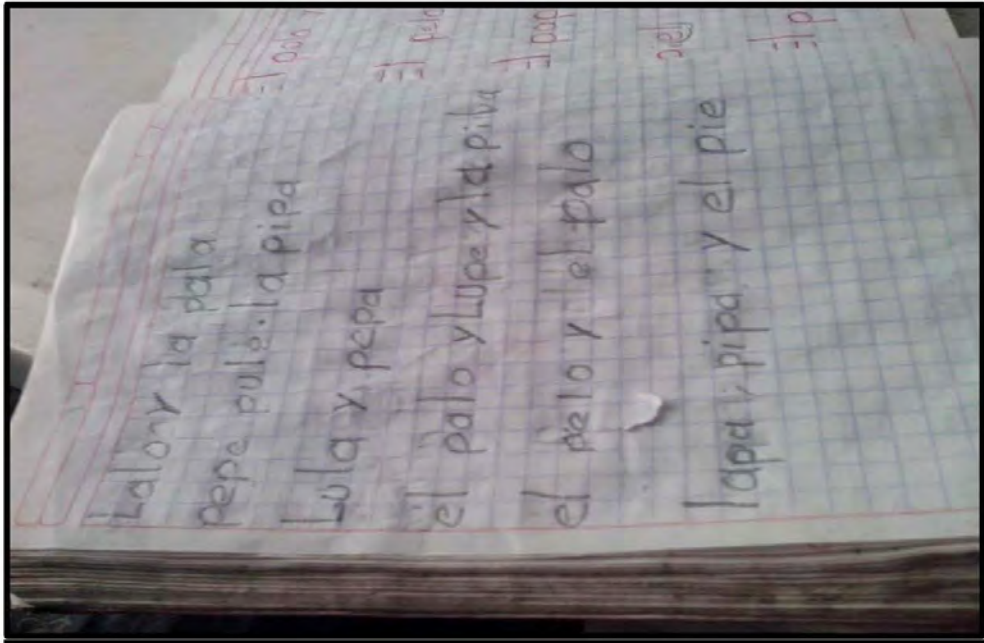 Lalo y la pala
pepe pule la pipa
Lula y pepa
el palo y Lupe y la pila
el pelo y el palo
la pipa y el pie
El
El pelo
El
El p